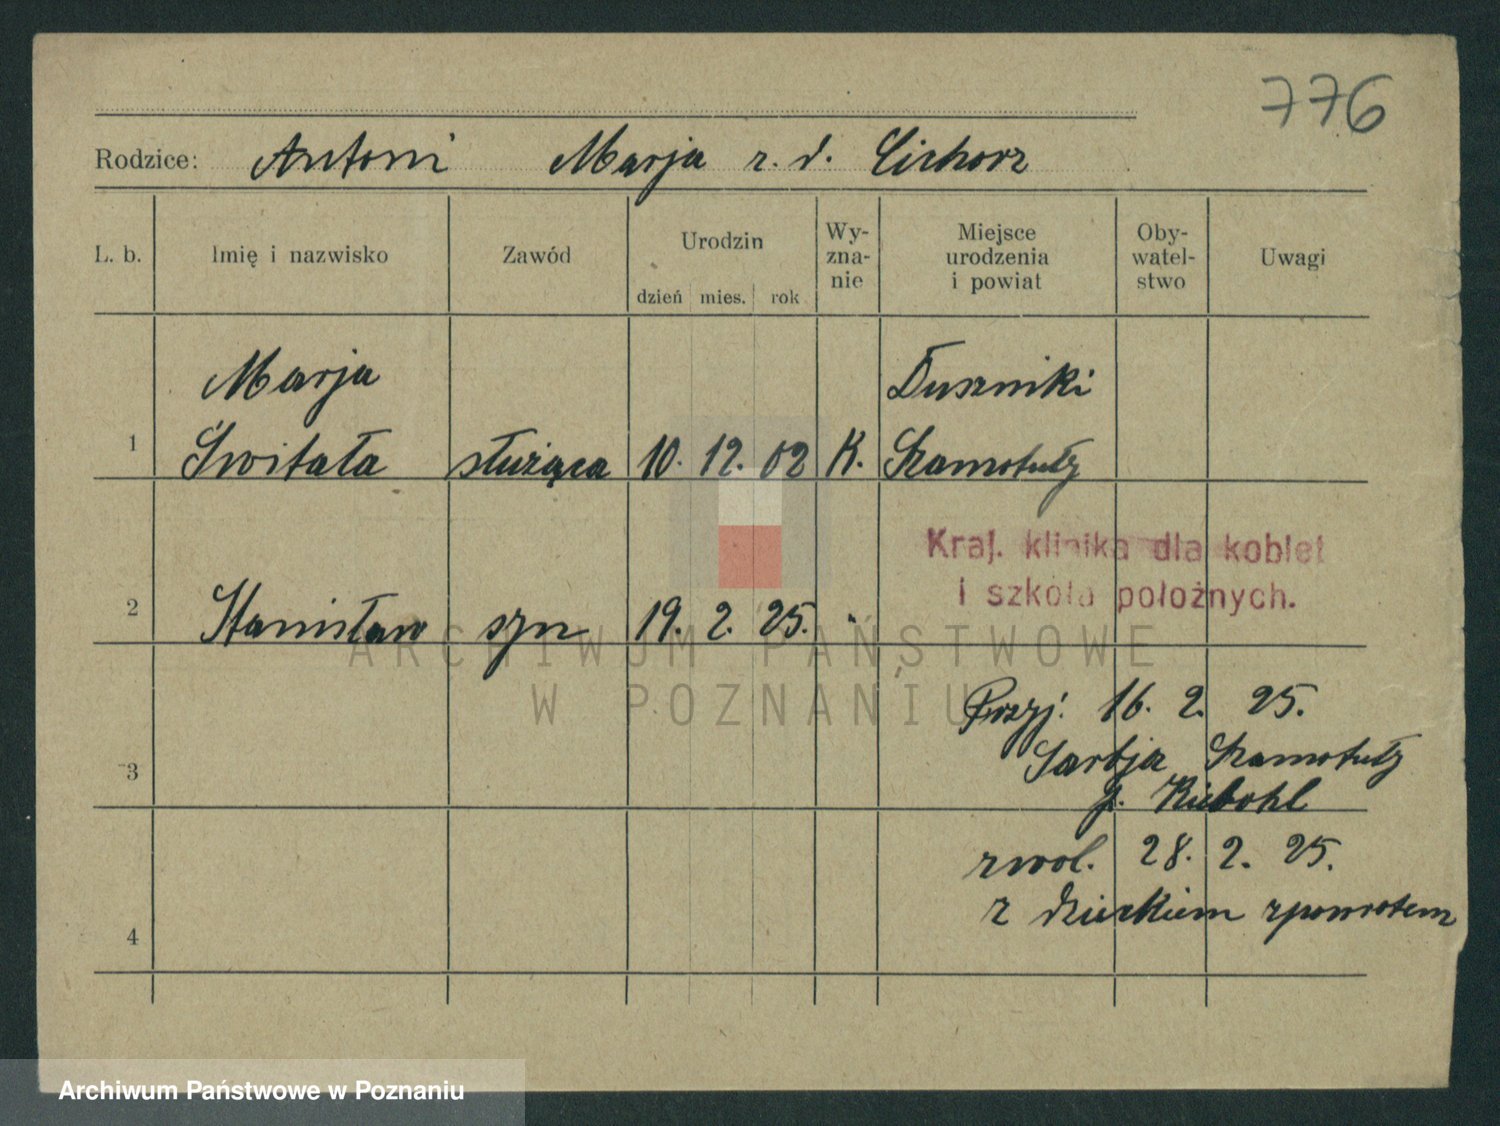 776
Rodzice: Antoni Marja z. d. Cichorz
L. b. Imię i nazwisko Zawód Urodzin dzień mies. rok Wy-zna-nie Miejsce urodzenia i powiat Oby-watel-stwo Uwagi
Marja Duszniki
1 Świtała służąca 10. 12. 02 K. Szamotuły
Kraj. klinika dla kobiet
i szkoła położnych.
2 Stanisław syn 19. 2. 25. "
ARCHIWUM PAŃSTWOWE
W POZNANIU
Przyj. 16. 2. 25.
3 Sarbja Szamotuły
p. Kiebohl
zwol. 28. 2. 25.
z dzieckiem zpowrotem
4
Archiwum Państwowe w Poznaniu